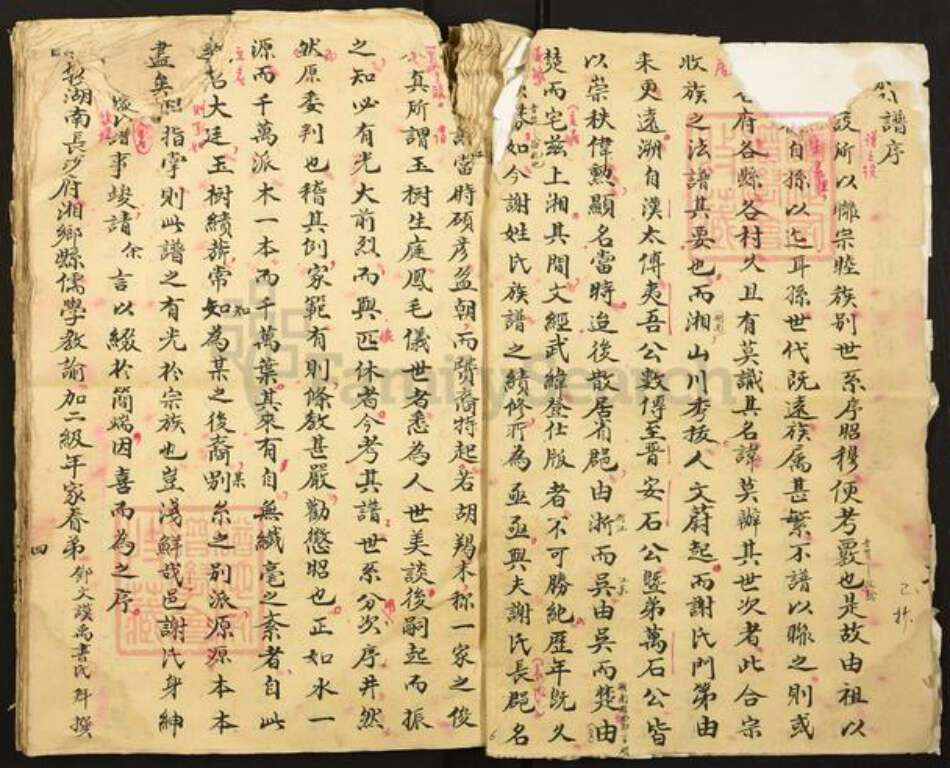 譜序
譜所以聯宗睦族別世系序昭穆便考覈也是故由祖以
自孫以迄耳孫世代既遠族属甚繁不譜以聯之則或
府各縣各村久且有莫識其名諱莫辦其世次者此合宗
收族之法譜其要也而湘山川秀拔人文蔚起而謝氏門第由
来更遠溯自漢太傅夷吾公數傳至晋安石公暨弟萬石公皆
以崇秩偉勲顯名當時迨後散居省郡由浙而吳由吳而楚由
楚而宅兹上湘其間文經武緯登仕版者不可勝紀歷年既久
如今謝姓氏族譜之續修所為亟亟與夫謝氏長郡名
當時碩彦盈朝而賢裔特起若胡羯末称一家之俊
真所謂玉樹生庭鳳毛儀世者悉為人世美談後嗣起而振
之知必有光大前烈而與匹休者今考其譜世系分次序井然
然原委判也稽其例家範有則條教甚嚴勸懲昭也正如水一
源而千萬派木一本而千萬葉其來有自無纖毫之紊者自此
大廷玉樹績薪常知為某之後裔別系之別派源源本本
盡矣 指掌則此譜之有光於宗族也豈淺鮮哉邑謝氏身紳
譜事竣請余言以綴於簡端因喜而為之序
湖南長沙府湘鄉縣儒學教諭加二級年家眷弟鄧文謨禹書氏拜撰
四
己
抄
FamilySearch